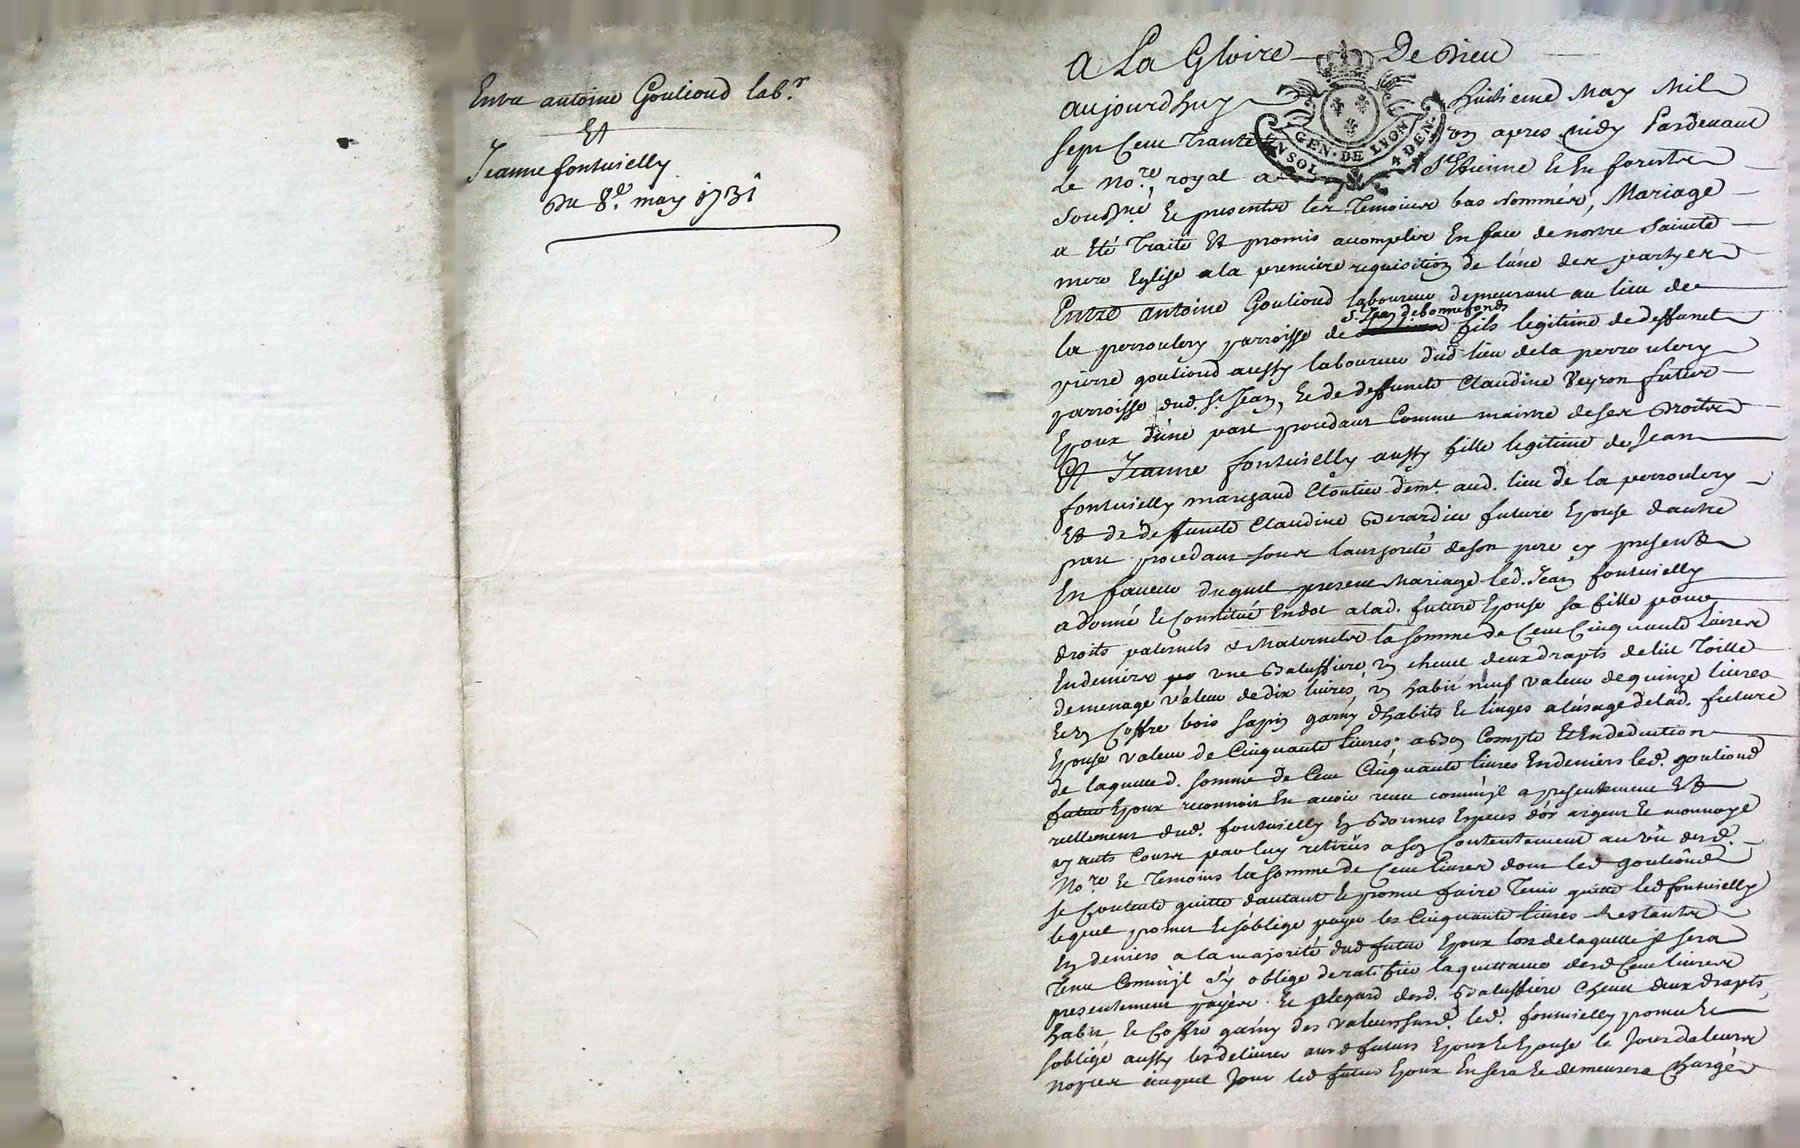 Entre antoine Goulioud lab.r
Et
Jeanne fontvielly
Du 8.e may 1731
A La Gloire De Dieu
aujourdhuy huitieme May Mil
sept Cent Trante Un apres midy Pardevant
le No.re royal a St Etienne En forestz
GEN. DE LYON
UN SOL 4 DEN.
soussigné Et presentz les Temoins bas nommés, Mariage
a Eté Traité Et promis accomplir En face de nostre Sainte
mere Eglise a la premiere requisition de l'une des partyes
Entre antoine Goulioud laboureur demeurant au lieu de
St Jean de bonnefonds
la perroulery parroisse de fils legitime de deffunct
pierre goulioud aussy laboureur dud lieu de la perroulery
parroisse dud. St Jean, Et de deffuncte Claudine Peyron futur
Epoux d'une part procedant Comme maitre de ses Droits
Et Jeanne fontvielly aussy fille legitime de Jean
fontvielly marchand Cloutier dem.t aud. lieu de la perroulery
Et de deffuncte Claudine Berardier future Epouse dautre
part procedant sous lauthorité de son pere icy present
En faveur duquel present Mariage led. Jean fontvielly
a donné Et Constitué En dot a lad. future Epouse sa fille pour
droits paternels & Maternels la somme de Cent Cinquante livres
En deniers une Batissiere, un chenet deux drapts de lit Toille
de menage valeur de dix livres, un habit neuf valeur de quinze livres
Et un Coffre bois sapin garny dhabits Et linges a lusage de lad. future
Epouse valeur de Cinquante livres; a Bon Compte Et En deduction
de laquelle d. somme de Cent Cinquante livres En deniers led. goulioud
futur Epoux reconnoit En avoir receu comme il a presentement Et
reellement dud. fontvielly En Bonnes Especes d'or argent Et monnoye
ayants Cours par luy retirés a son Contentement au vû desd.
No.re Et Temoins la somme de Cent livres dont led goulioud
se Contente quitte dautant Et promet faire Tenir quitte led fontvielly
lequel promet Et s'oblige payer les Cinquante livres Restantes
En deniers a la majorité dud futur Epoux lors de laquelle il sera
Tenu Comme il s'y oblige de ratifier la quittance desd Cent livres
presentement payées. Et a l'egard desd. Batissiere Chenet deux drapts,
habit Et Coffre garny des valeurs susd. led. fontvielly promet Et
s'oblige aussy les delivrer auxd futurs Epoux Et Epouse le Jour de leurs
nopces auquel Jour led futur Epoux En sera Et demeurera Chargé